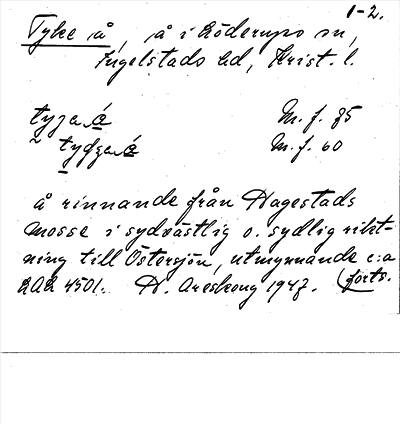 1-2.
Tyke å, å i Löderups sn,
Ingelstads hd, Krist. l.
M. f. 85
M. f. 60
å rinnande från Hagestads
mosse i sydvästlig o. sydlig rikt-
ning till Östersjön, utmynnande c:a
4501. H. Areskoug 1947. (forts.